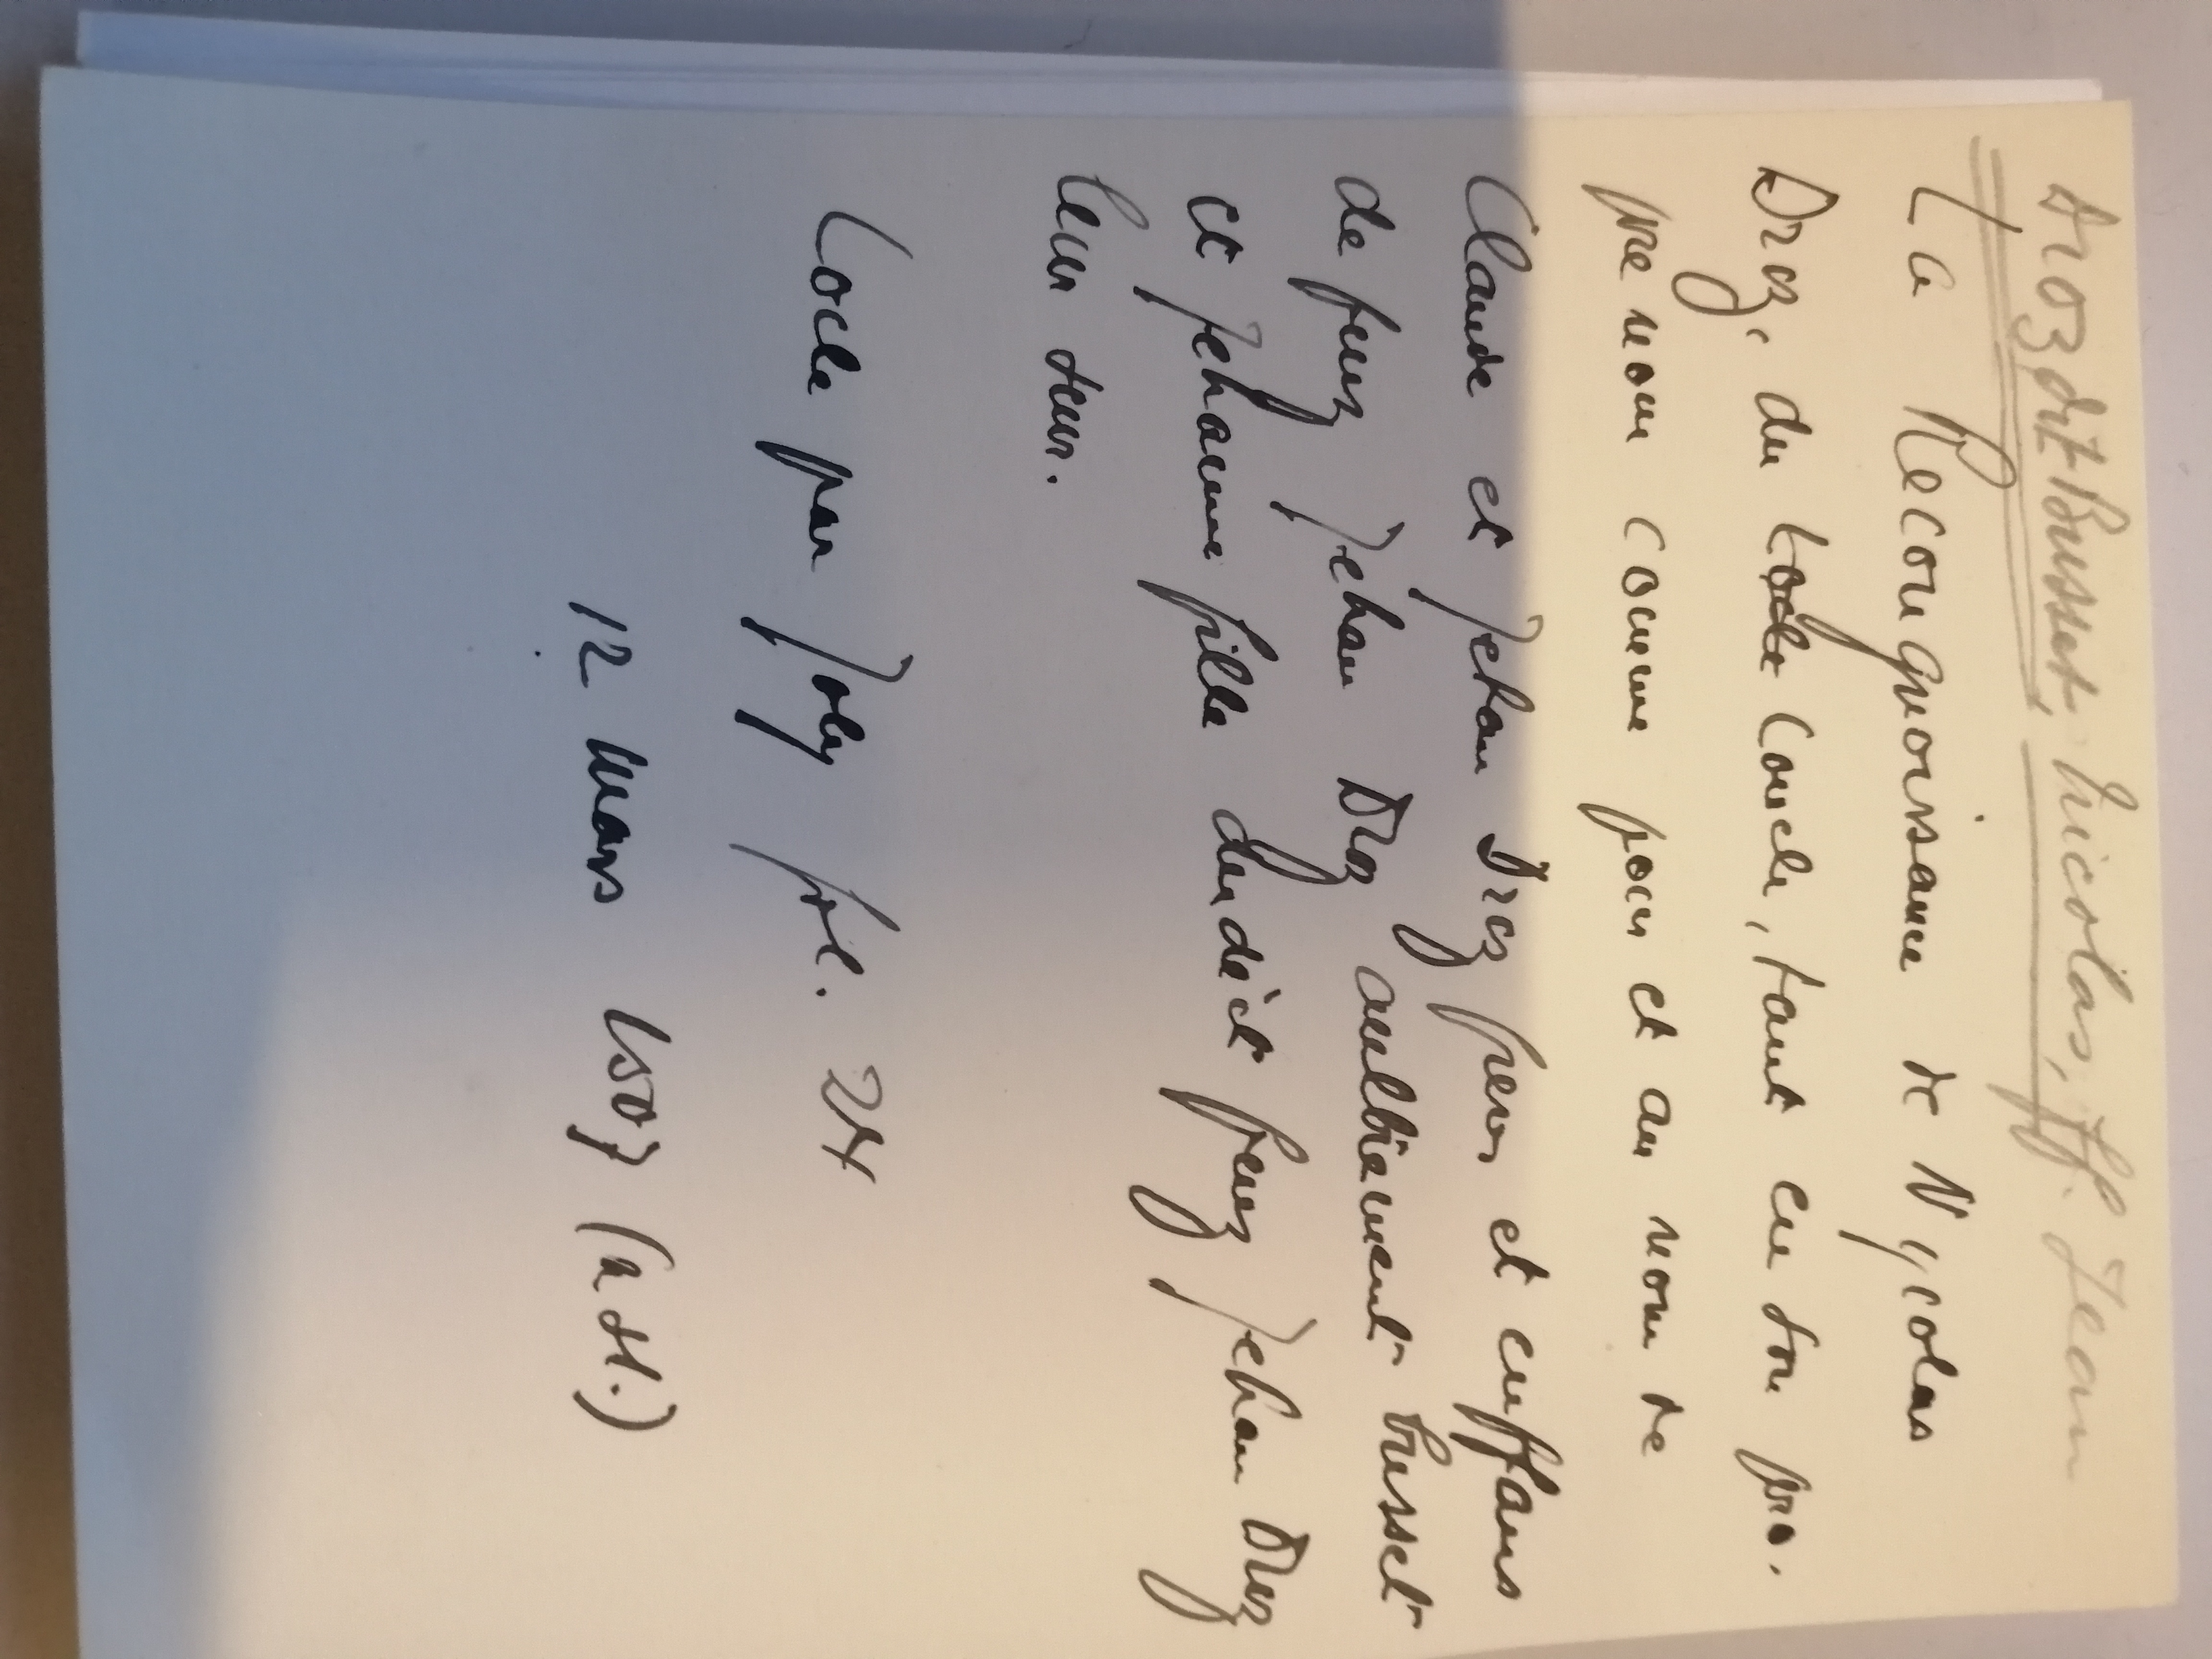 Droz dit Busset, Nicolas, ff. Jean
La Recongnoissance de Nycolas
Droz, du Locle Loucle, tant en son pro.
pre nom comme pour et au nom de
Claude et Jehan Droz freres et enffans
de feuz Jehan Droz aultrement Busset
et Jehanne fille dendict feuz Jehan Droz
leur seur.
Locle par Joly fol. 24
12 mars 1507 (n. st.)